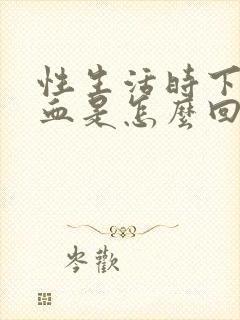 性生活時下
血是怎麼回
岑歡